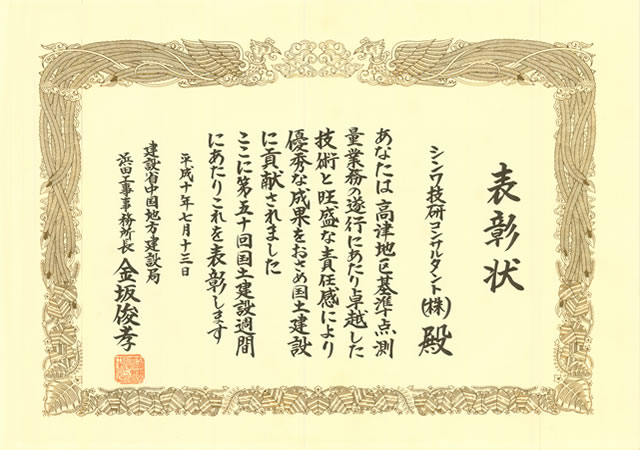 表彰状
シンワ技研コンサルタント(株) 殿
あなたは高津地区基準点測
量業務の遂行にあたり卓越した
技術と旺盛な責任感により
優秀な成果をおさめ国土建設
に貢献されました
ここに第五十回国土建設週間
にあたりこれを表彰します
平成十年七月十三日
建設省中国地方建設局
浜田工事事務所長 金坂俊孝